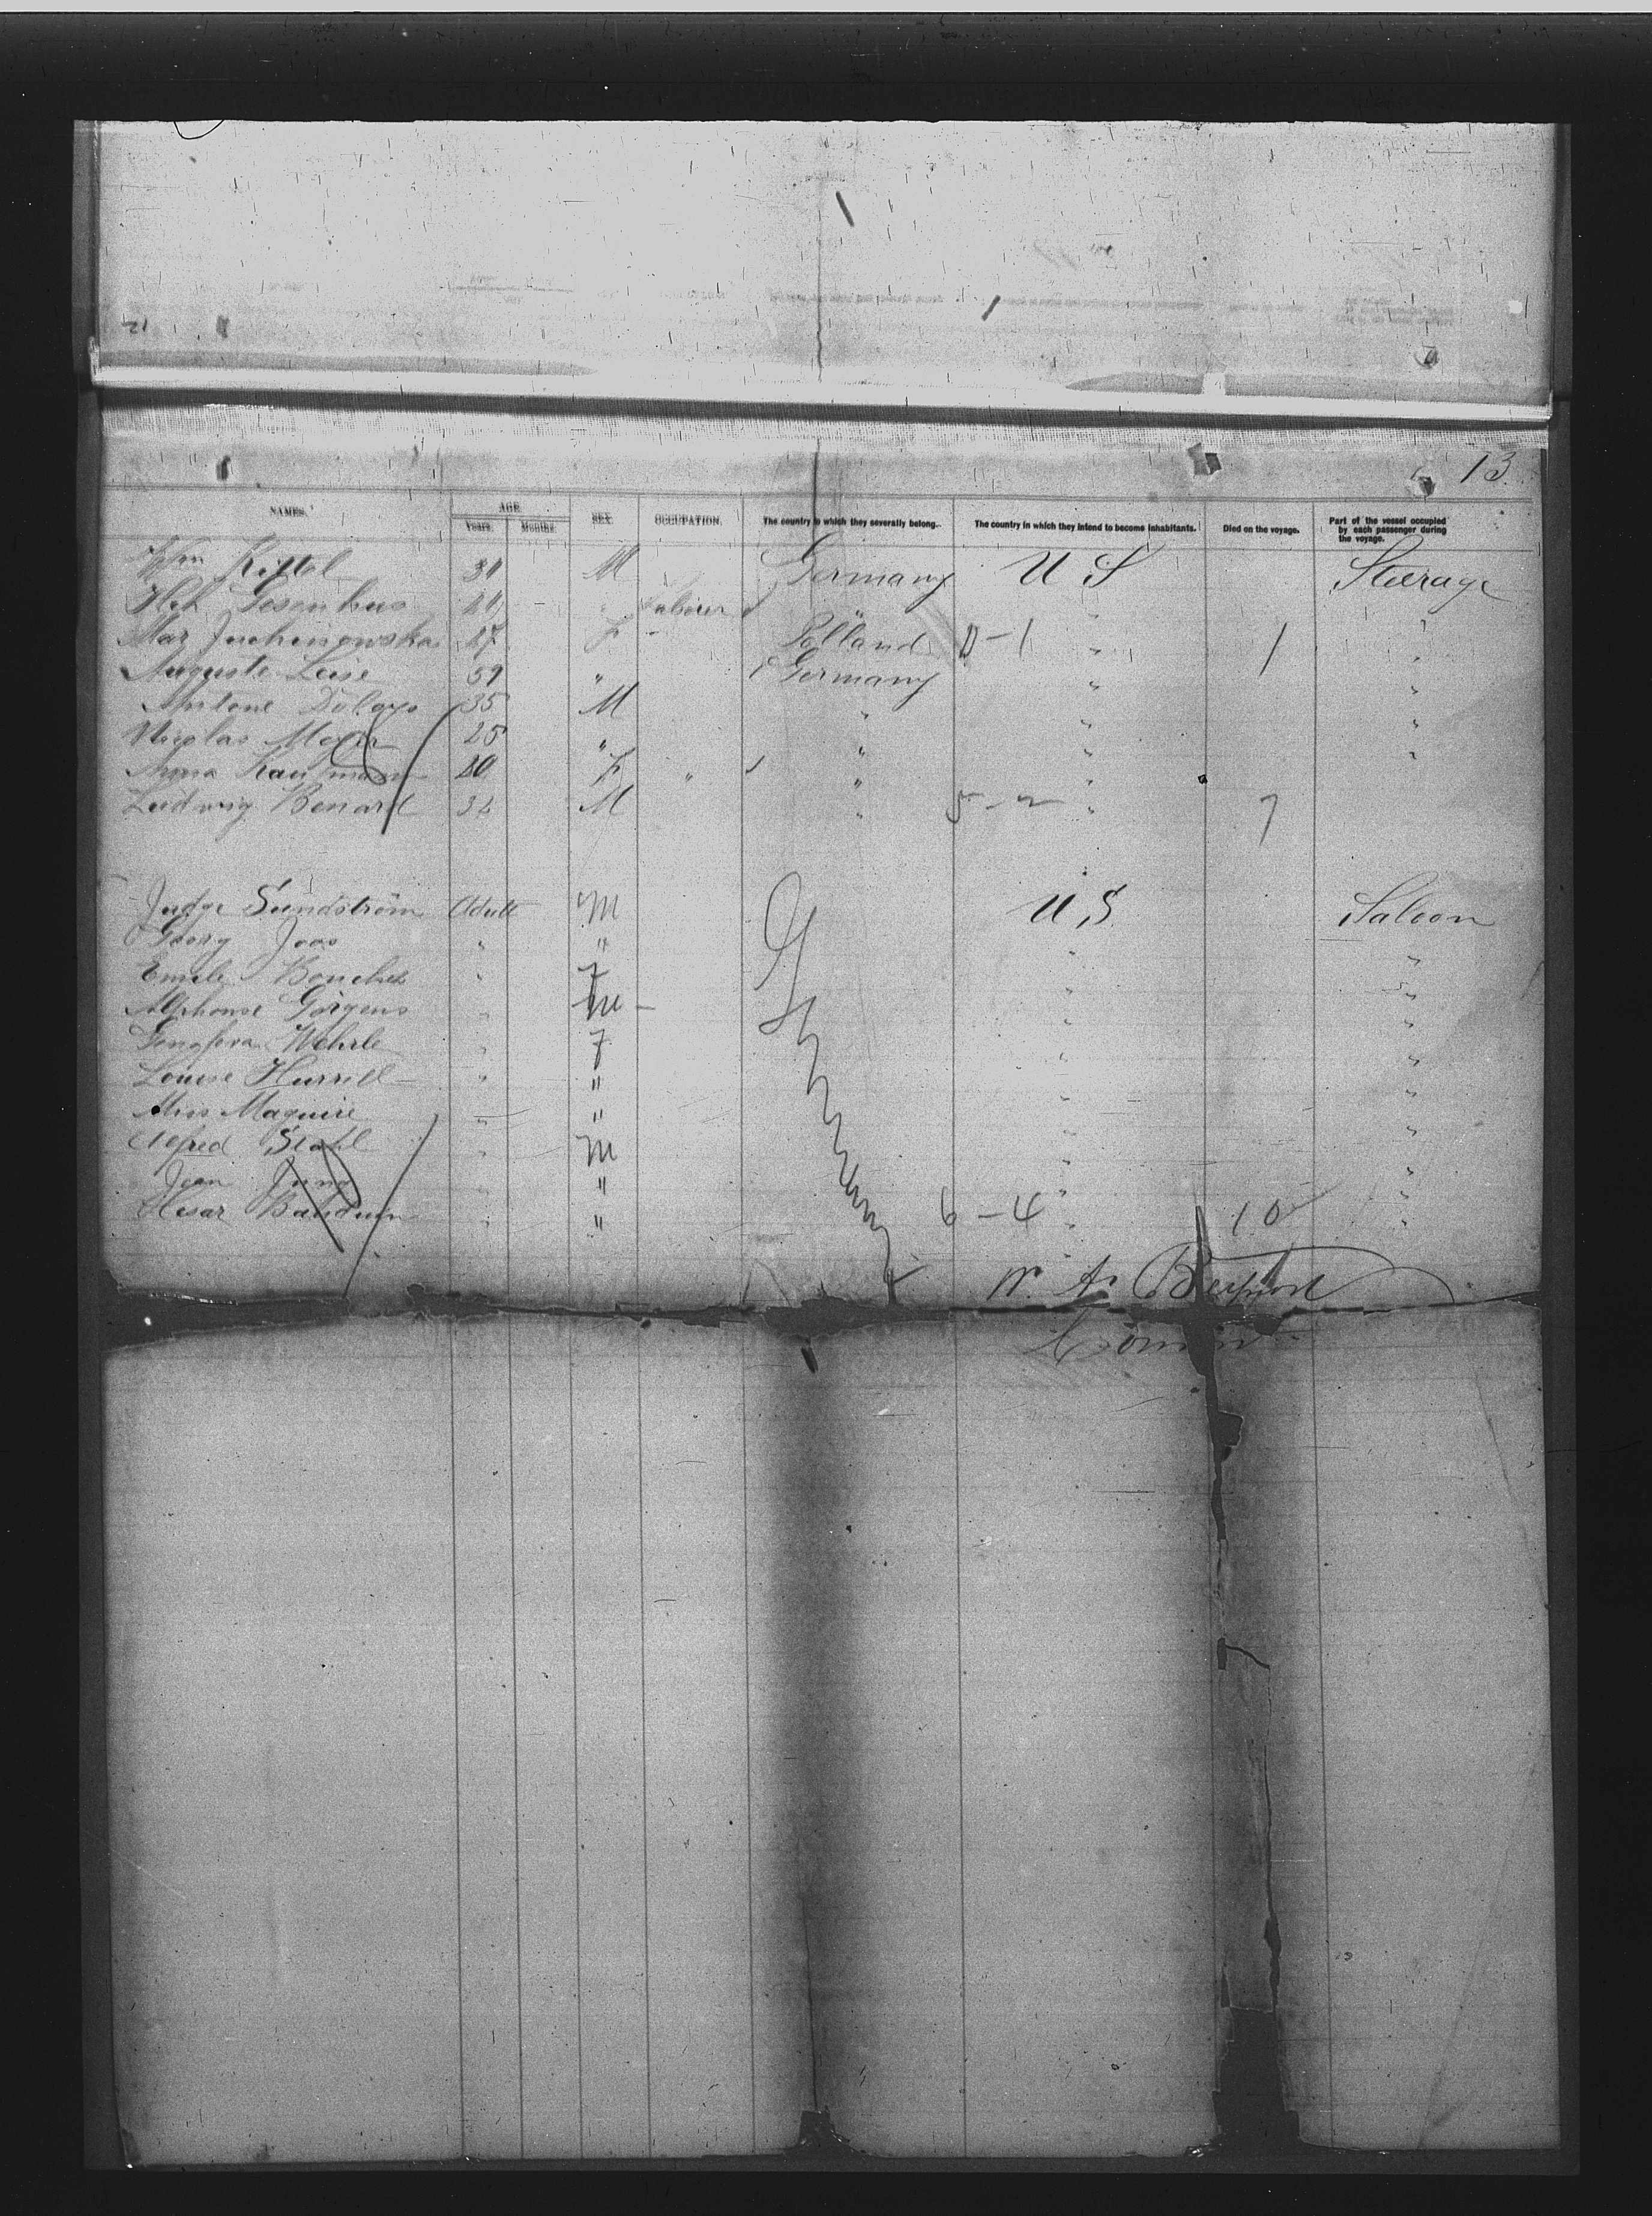 13.
NAMES. AGE. SEX. OCCUPATION. The country to which they severally belong. The country in which they intend to become inhabitants. Died on the voyage. Part of the vessel occupied by each passenger during the voyage.
Years. Months.
Wm 31 M Germany U S Steerage
Hch Gosenhus " Laborer " " "
Mar Juchinowska 27 F Polland 0-1 " 1 "
Auguste Leise 59 " Germany " "
Antone 35 M " " "
Nicolas Meyer 25 " " " "
Anna Kaufmann 20 F " " "
Ludwig Benard 32 M " 5-2 " 7
Judge Sundström Adult M Germany U.S. Saloon
Georg Joos " " " "
Emile Bouchez " F " "
Alphonse Görgens " M " "
Wehrle " F " "
Louise Hurrell " " " "
Miss Maguire " " " "
Alfred Stahl " M " "
Jean Jung " " " "
Cesar Bauduin " " 6-4 " 10 "
W. A.